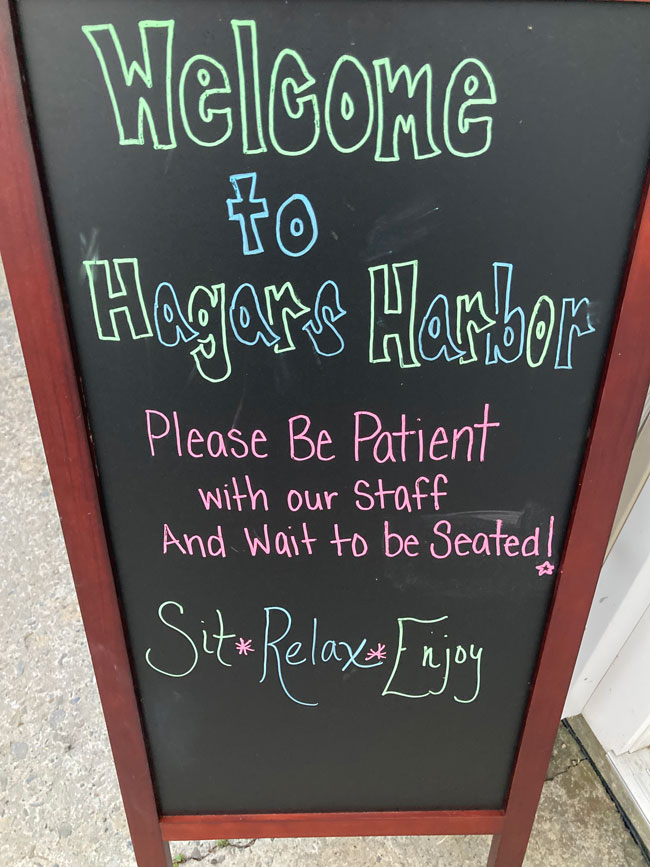 Welcome
to
Hagars Harbor
Please Be Patient
with our Staff
And Wait to be Seated!
Sit*Relax*Enjoy